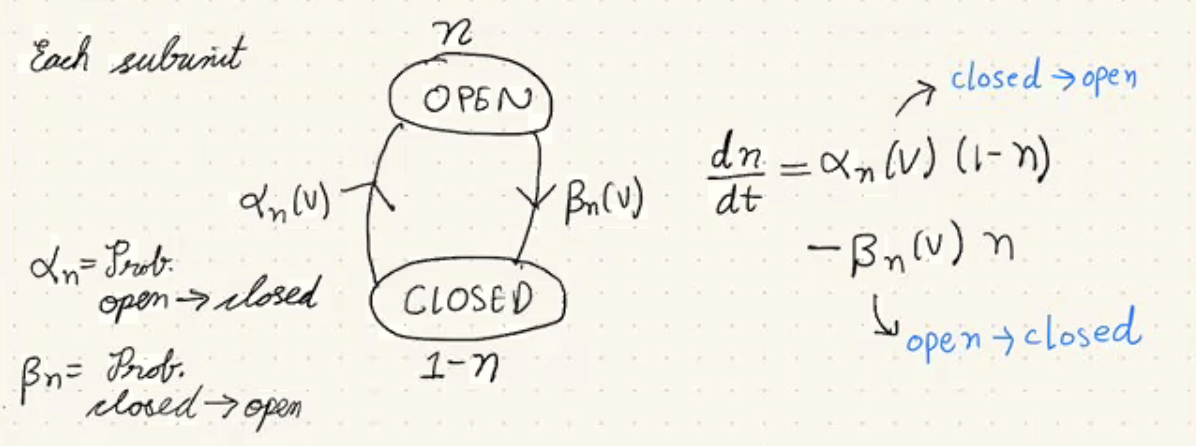 Each subunit
n
OPEN
αₙ(V)
βₙ(V)
CLOSED
1-n
αₙ= Prob.
open → closed
βₙ= Prob.
closed → open
closed → open
dn/dt = αₙ(V) (1-n)
- βₙ(V) n
open → closed